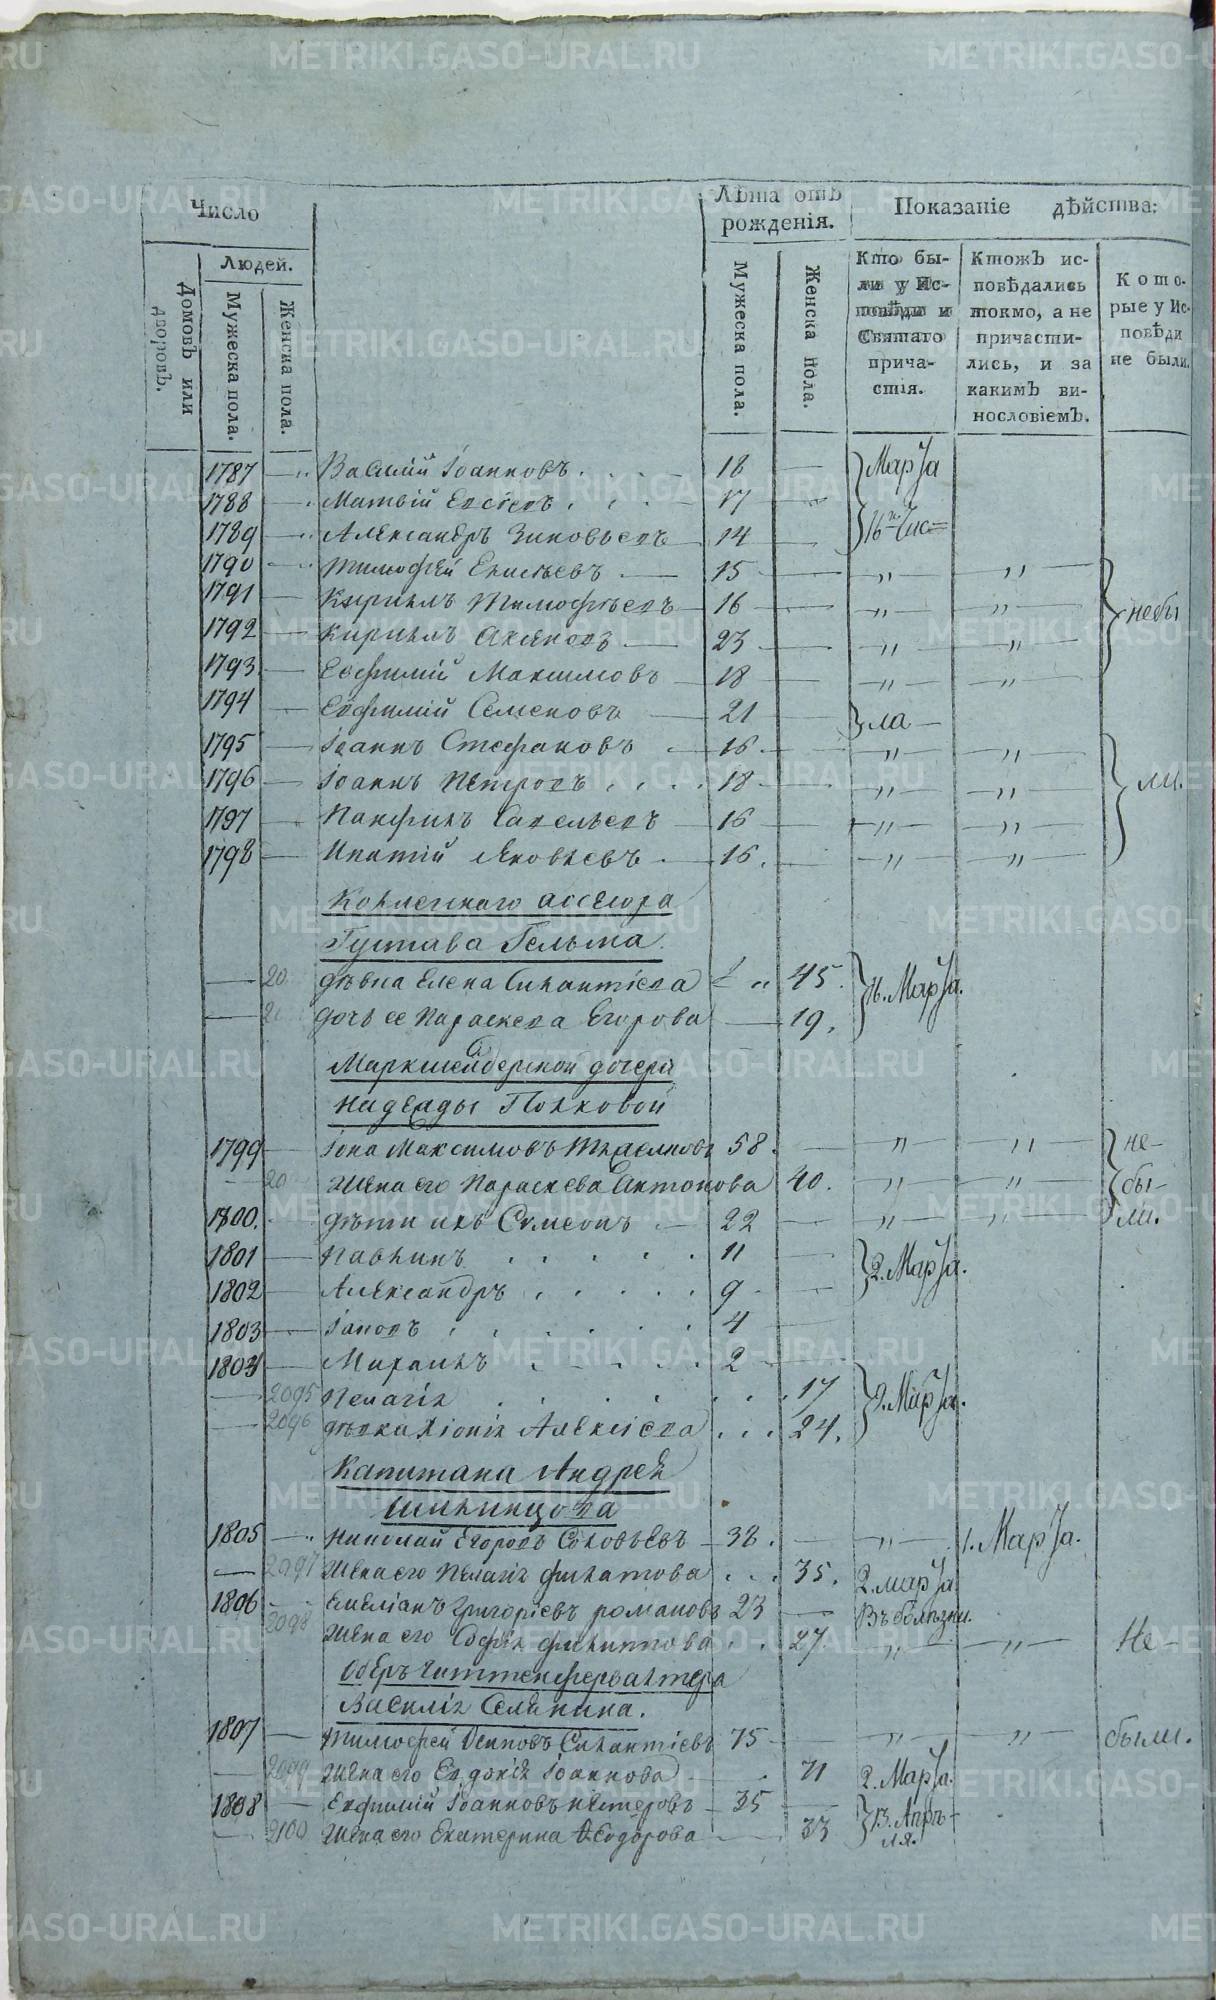 Число
Людей.
Домовъ или дворовъ.
Мужеска пола.
Женска пола.
Лѣта отъ рожденія.
Мужеска пола.
Женска пола.
Показаніе дѣйства:
Кто были у Исповѣди и Святаго причастія.
Ктожъ исповѣдались токмо, а не причастились, и за какимъ винословіемъ.
Которые у Исповѣди не были.
1787 — Василій Іоанновъ 18 — Марта
1788 — Матвѣй Евсѣевъ 17
1789 — Александръ Зиновьевъ 14 — 16 Чис=
1790 — Тимофѣй Елисѣевъ — 15 — „ „
1791 — Кирилъ Тимофѣевъ — 16 — „ „ небы
1792 — Кирилъ — 23 — „ „
1793 — Евфимій Максимовъ — 18 — „ „
1794 — Евфимій Семеновъ — 21 — ла —
1795 — Іоаннъ Стефановъ — 16 — „ „
1796 — Іоаннъ Петровъ 18 — „ „ ли.
1797 — Панфилъ Савельевъ — 16 — „ „
1798 — Ипатій Яковлевъ — 16. — „ „
Коллежскаго ассесора
Густава Гельма.
— 20 дѣвка Елена Силантіева „ 45. 16. Марта.
— 2 дочь ее Параскева Егорова — 19.
Маркшейдерской дочери
Надежды Полковой
1799 — Іона Максимовъ 58. — „ „ не-
— 20 Жена его Параскева Антонова 40. „ „ бы-
1800. дѣти ихъ Симеонъ — 22 — „ „ ли.
1801 — Павлинъ 11 — 2. Марта.
1802 — Александръ 9 —
1803 — Іаковъ 4 —
1804 — Михаилъ 2 —
— 2095 Пелагія 17 9. Марта.
— 2096 дѣвка Хіонія Алексіева 24.
Капитана Андрея
1805 — Николай Егоровъ Соловьевъ — 38. — „ — 1. Марта.
— 2097 Жена его Пелагія Филатова 35. 2. Марта
1806 — Емеліанъ Григоріевъ Романовъ 23 — Въ болѣзни.
2098 Жена его Софія Филиппова 27. „ — „ — Не-
Оберъ Гиттенфервалтера
Василія Селянина.
1807 — Тимофей Осиповъ Силантіевъ 75 — „ „ были.
— 2099 Жена его Евдокія Іоаннова — 71 2. Марта.
1808 — Евфимій Іоанновъ Нестеровъ — 35 — 13. Апрѣ-
— 2100 Жена его Екатерина Ѳеодорова — 33 ля.
METRIKI.GASO-URAL.RU